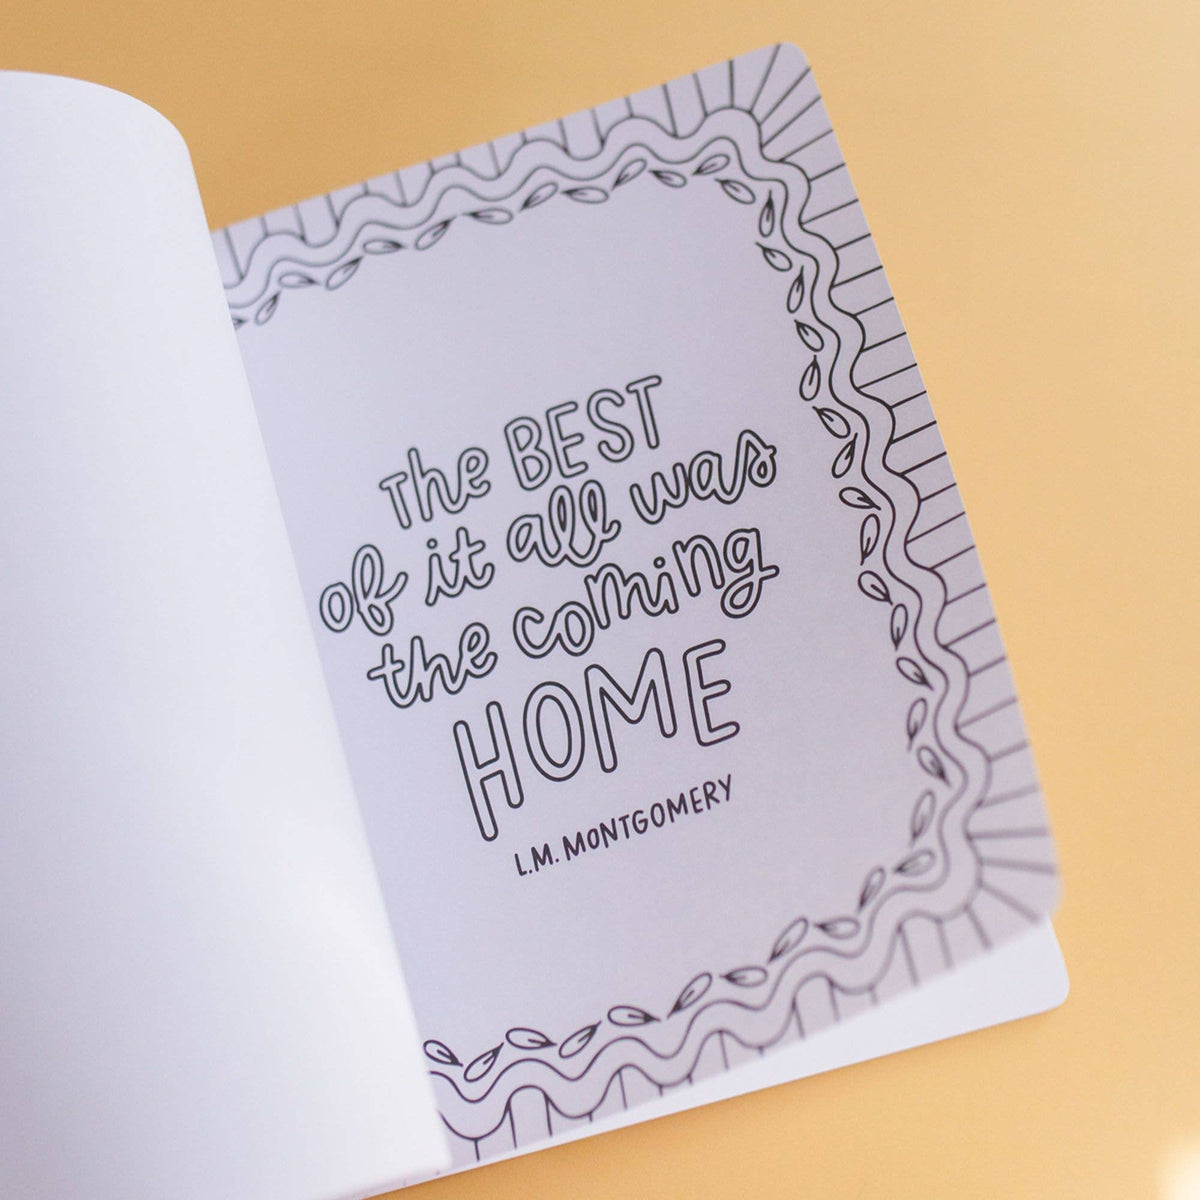 The BEST
of it all was
the coming
HOME
L.M. MONTGOMERY